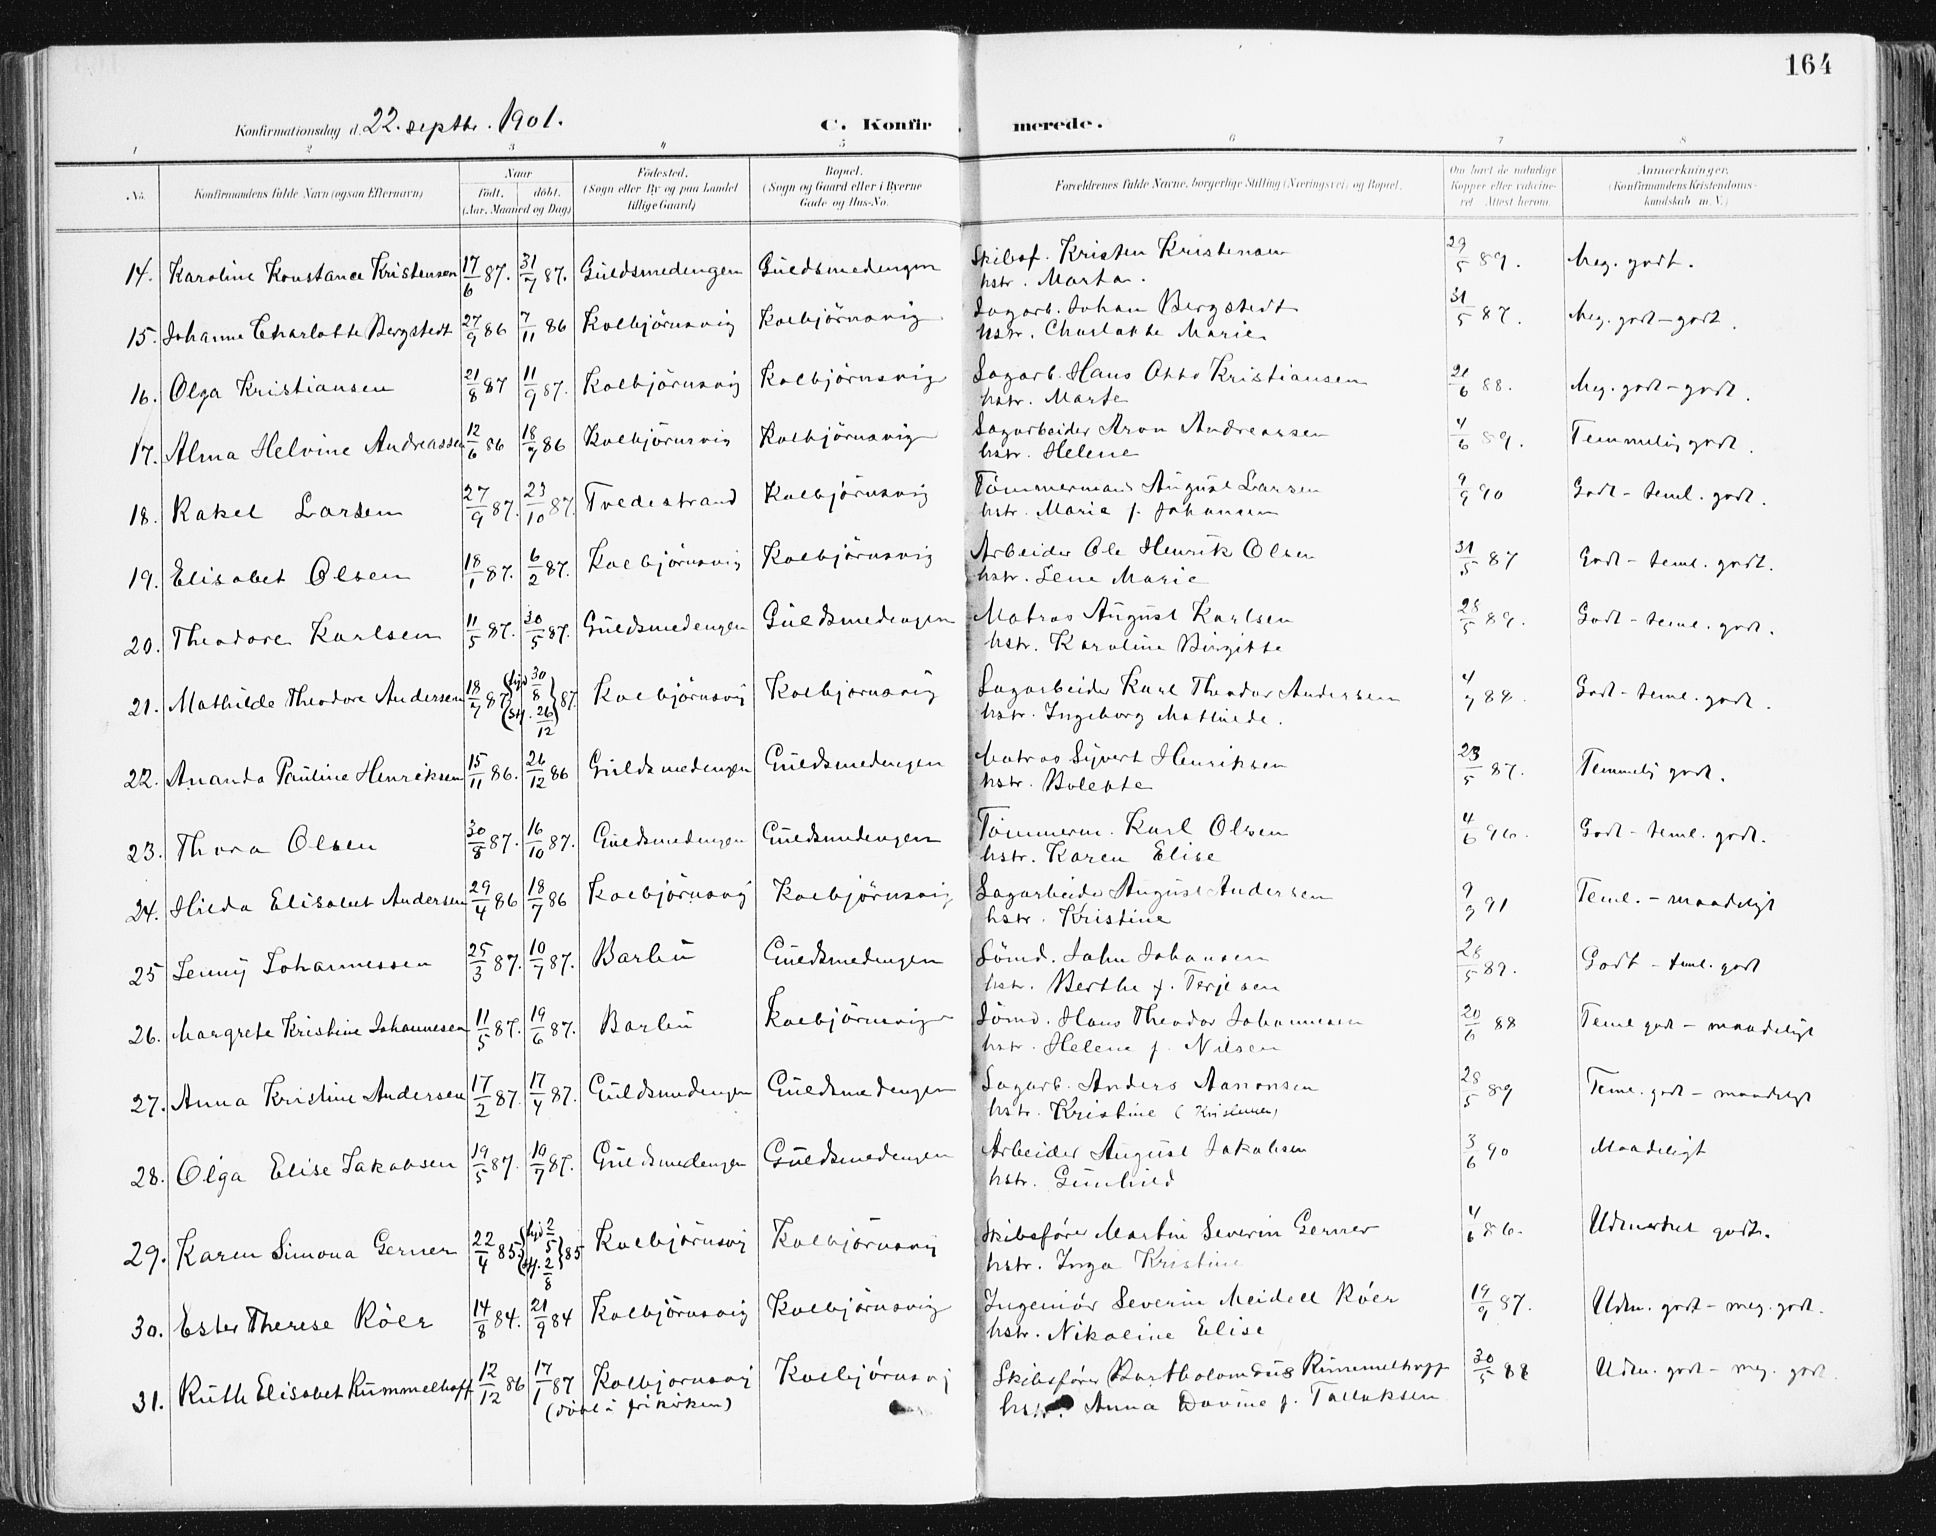 164
Konfirmationsdag d. 22. septbr. 1901.
C. Konfirmerede.
1 2 3 4 5 6 7 8
No. Konfirmandens fulde Navn (ogsaa Efternavn) Naar født, døbt. (Aar, Maaned og Dag) Fødested. (Sogn eller By og paa Landet tillige Gaard) Bopæl. (Sogn og Gaard eller i Byerne Gade og Hus-No. Forældrenes fulde Navne, borgerlige Stilling (Næringsvei) og Bopæl. Om havt de naturlige Kopper eller vaccineret. Attest herom. Anmærkninger. (Konfirmandens Kristendomskundskab m.V.)
14. Karoline Konstance Kristensen 17/6 87. 31/7 87. Guldsmedengen Guldsmedengen Skibsf. Kristen Kristensen 29/5 89. Meg. godt.
hstr. Marta.
15. Johanne Charlotte Bergstedt 27/9 86 7/11 86 Kolbjörnsvig Kolbjörnsvig Sagarb. Johan Bergstedt 31/5 87. Meg. godt - godt.
hstr. Charlotte Marie
16. Olga Kristiansen 21/8 87 11/9 87. Kolbjörnsvig Kolbjörnsvig Sagarb. Hans Otto Kristiansen 21/6 88. Meg. godt - godt.
hstr. Marte
17. Alma Helvine Andreassen 12/6 86 18/7 86 Kolbjörnsvig Kolbjörnsvig Sagarbeider Aron Andreassen 4/6 89. Temmelig godt.
hstr. Helene
18. Rakel Larsen 27/9 87. 23/10 87 Tvedestrand Kolbjörnsvig Tömmermand August Larsen 9/9 90 Godt - teml. godt.
hstr. Marie f. Johansen
19. Elisabet Olsen 18/1 87. 6/2 87. Kolbjörnsvig Kolbjörnsvig Arbeider Ole Henrik Olsen 31/5 87 Godt - teml. godt.
hstr. Lene Marie
20. Theodore Karlsen 11/5 87. 30/5 87. Guldsmedengen Guldsmedengen Matros August Karlsen 28/5 89. Godt - teml. godt.
hstr. Karoline Birgitte
21. Mathilde Theodore Andersen 18/7 87 (hjd 30/8 (st. 26/12 } 87. Kolbjörnsvig Kolbjörnsvig Sagarbeider Karl Theodor Andersen 4/7 88. Godt - teml. godt.
hstr. Ingeborg Mathilde.
22. Ananda Pauline Henriksen 15/11 86. 26/12 86 Guldsmedengen Guldsmedengen Matros Sivert Henriksen 23/5 87. Temmelig godt.
hstr. Bolette
23. Thora Olsen 30/8 87. 16/10 87. Guldsmedengen Guldsmedengen Tömmerm. Karl Olsen 4/6 96. Godt - teml. godt.
hstr. Karen Elise
24. Hilda Elisabet Andersen 29/4 86 18/7 86 Kolbjörnsvig Kolbjörnsvig Sagarbeider August Andersen 9/9 91 Teml. - maadeligt
hstr. Kristine
25 Jenny Johannessen 25/3 87. 10/7 87. Barbu Guldsmedengen Sömd. John Johansen 28/5 89. Godt - teml. godt
hstr. Berthe f. Terjesen
26. Margrete Kristine Johannesen 11/5 87. 19/6 87. Barbu Kolbjörnsvig Sömd. Hans Theodor Johannesen 20/6 88 Teml godt - maadeligt
hstr. Helene f. Nilsen
27. Anna Kristine Andersen 17/2 87. 17/4 87. Guldsmedengen Guldsmedengen Sagarb. Anders Aanonsen 28/5 89 Teml. godt - maadeligt
hstr. Kristine
28. Olga Elise Jakobsen 19/5 87. 10/7 87. Guldsmedengen Guldsmedengen Arbeider August Jakobsen 3/6 90 Maadeligt
hstr. Gunhild
29. Karen Simona Gerner 22/4 85. (hjd 2/5 (st. 2/8 } 85 Kolbjörnsvig Kolbjörnsvig Skibsförer Martin Severin Gerner 4/6 86. Udmerket godt.
hstr. Inga Kristine
30. Ester Therese Röer 14/8 84. 21/9 84 Kolbjörnsvig Kolbjörnsvig Ingeniör Severin Meidell Röer 19/9 87. Udm. godt - meg. godt.
hstr. Nikoline Elise
31. Ruth Elisabet Rummelhoff 12/12 86 17/1 87 Kolbjörnsvig Kolbjörnsvig Skibsförer Bartholomæus Rummelhoff 30/5 88 Udm. godt - meg. godt.
(döbt i frikirken) hstr. Anna Davine f. Tallaksen